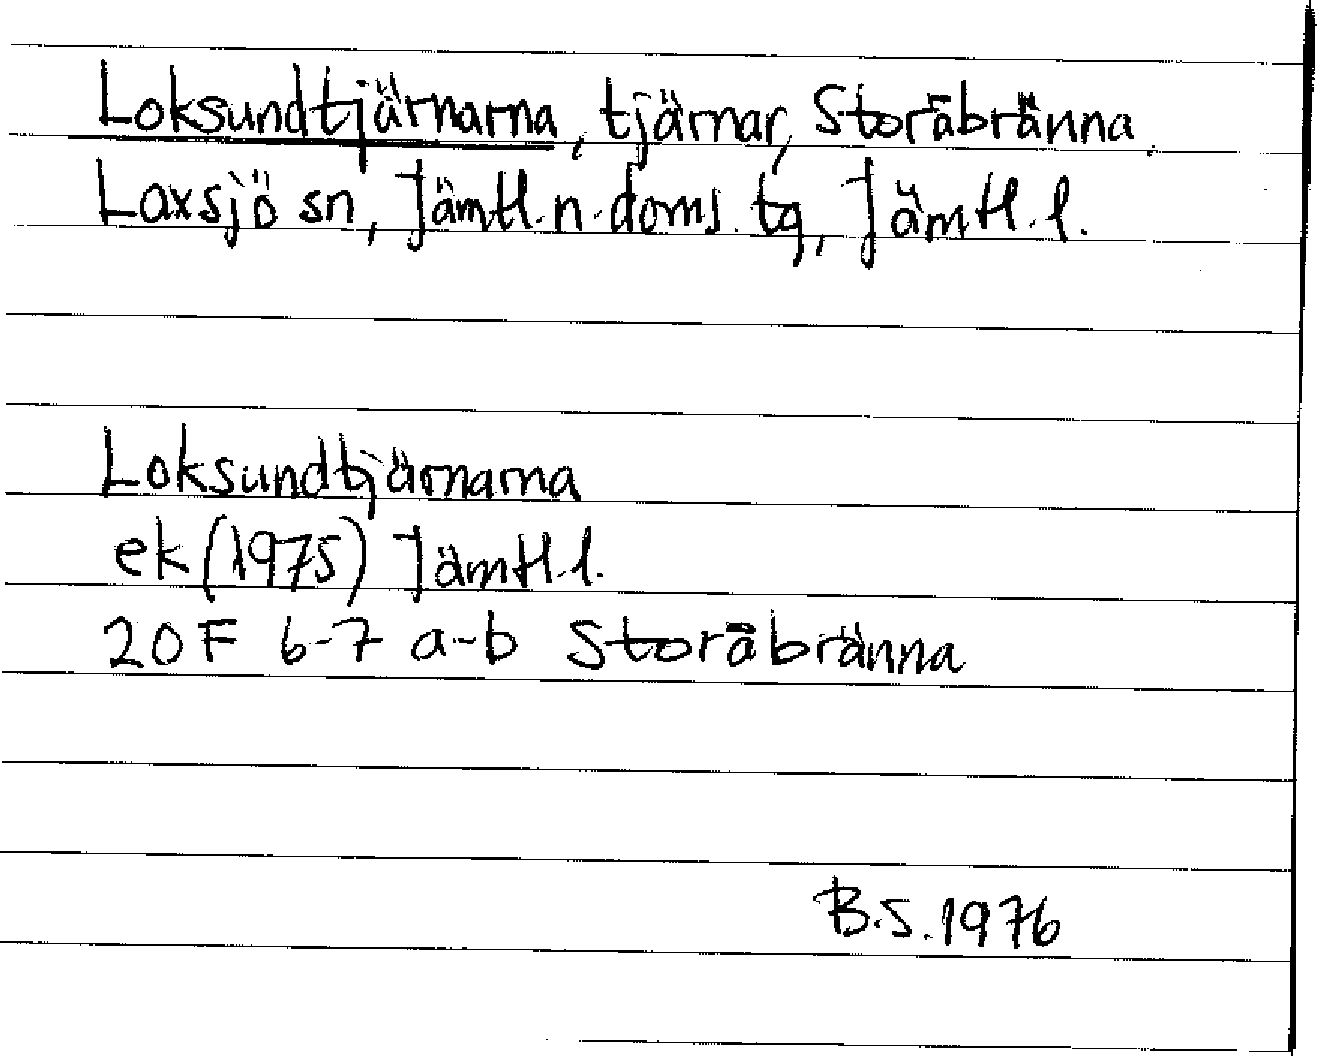 Loksundtjärnarna, tjärnar, Storåbränna,
Laxsjö sn, Jämtl. n. doms. tg, Jämtl. l.
Loksundtjärnarna
ek (1975) Jämtl. l.
20F 6-7 a-b Storåbränna
B.S. 1976